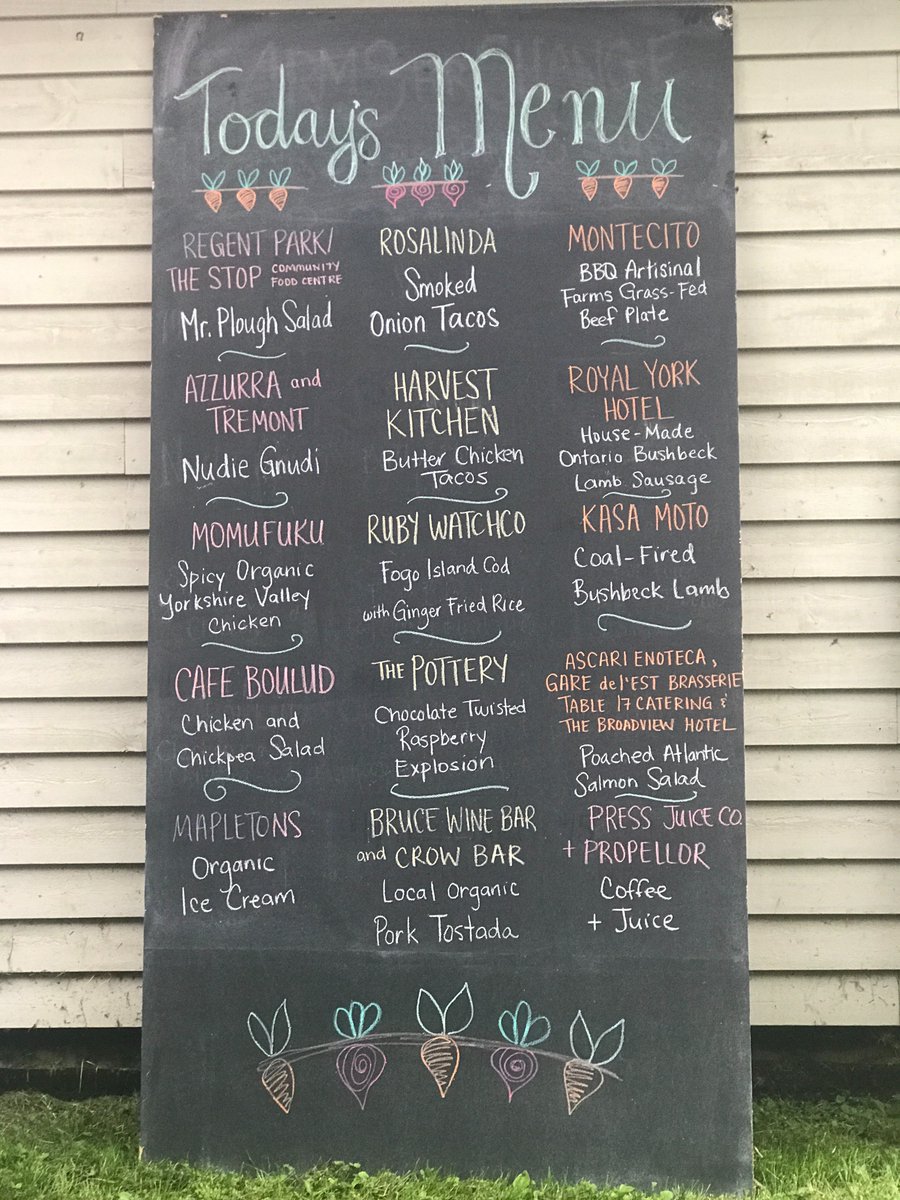 Today's Menu
REGENT PARK/
THE STOP COMMUNITY FOOD CENTRE
Mr. Plough Salad
AZZURRA and
TREMONT
Nudie Gnudi
MOMUFUKU
Spicy Organic
Yorkshire Valley
Chicken
CAFE BOULUD
Chicken and
Chickpea Salad
MAPLETONS
Organic
Ice Cream
ROSALINDA
Smoked
Onion Tacos
HARVEST
KITCHEN
Butter Chicken
Tacos
RUBY WATCHCO
Fogo Island Cod
with Ginger Fried Rice
THE POTTERY
Chocolate Twisted
Raspberry
Explosion
BRUCE WINE BAR
and CROW BAR
Local Organic
Pork Tostada
MONTECITO
BBQ Artisinal
Farms Grass-Fed
Beef Plate
ROYAL YORK
HOTEL
House-Made
Ontario Bushbeck
Lamb Sausage
KASA MOTO
Coal-Fired
Bushbeck Lamb
ASCARI ENOTECA,
GARE de l'EST BRASSERIE
TABLE 17 CATERING &
THE BROADVIEW HOTEL
Poached Atlantic
Salmon Salad
PRESS JUICE CO.
+ PROPELLOR
Coffee
+ Juice